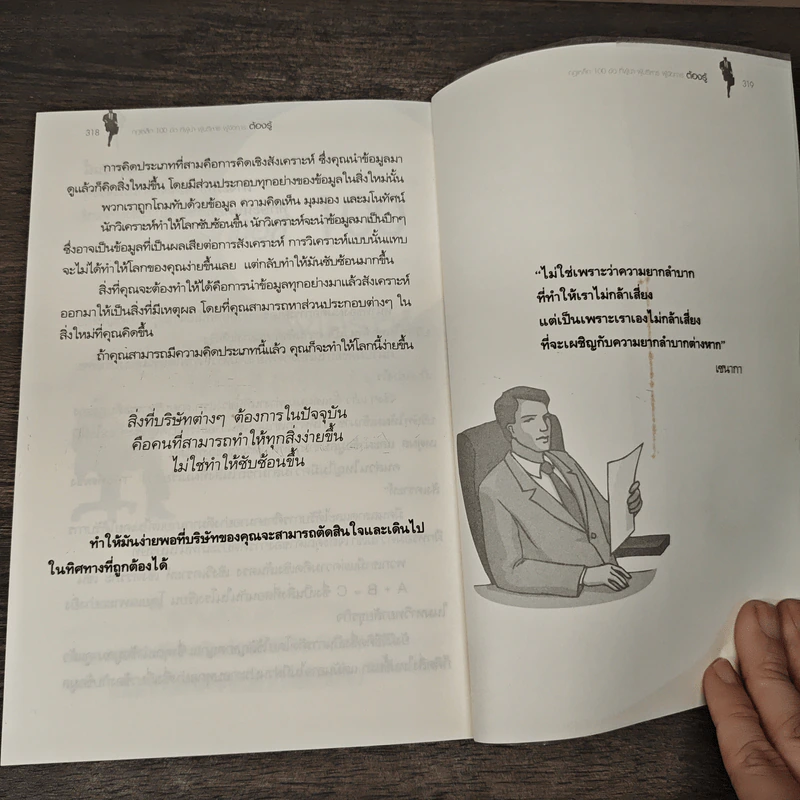 318
ต้องรู้
การคิดประเภทที่สามคือการคิดเชิงสังเคราะห์ ซึ่งคุณนำข้อมูลมา
ดูแล้วก็คิดสิ่งใหม่ขึ้น โดยมีส่วนประกอบทุกอย่างของข้อมูลในสิ่งใหม่นั้น
พวกเราถูกโถมทับด้วยข้อมูล ความคิดเห็น มุมมอง และมโนทัศน์
นักวิเคราะห์ทำให้โลกซับซ้อนขึ้น นักวิเคราะห์จะนำข้อมูลมาเป็นปึกๆ
ซึ่งอาจเป็นข้อมูลที่เป็นผลเสียต่อการสังเคราะห์ การวิเคราะห์แบบนั้นแทบ
จะไม่ได้ทำให้โลกของคุณง่ายขึ้นเลย แต่กลับทำให้มันซับซ้อนมากขึ้น
สิ่งที่คุณจะต้องทำให้ได้คือการนำข้อมูลทุกอย่างมาแล้วสังเคราะห์
ออกมาให้เป็นสิ่งที่มีเหตุผล โดยที่คุณสามารถหาส่วนประกอบต่างๆ ใน
สิ่งใหม่ที่คุณคิดขึ้น
ถ้าคุณสามารถมีความคิดประเภทนี้แล้ว คุณก็จะทำให้โลกนี้ง่ายขึ้น
สิ่งที่บริษัทต่างๆ ต้องการในปัจจุบัน
คือคนที่สามารถทำให้ทุกสิ่งง่ายขึ้น
ไม่ใช่ทำให้ซับซ้อนขึ้น
ทำให้มันง่ายพอที่บริษัทของคุณจะสามารถตัดสินใจและเดินไป
ในทิศทางที่ถูกต้องได้
ต้องรู้
319
"ไม่ใช่เพราะว่าความยากลำบาก
ที่ทำให้เราไม่กล้าเสี่ยง
แต่เป็นเพราะเราเองไม่กล้าเสี่ยง
ที่จะเผชิญกับความยากลำบากต่างหาก"
เซนากา